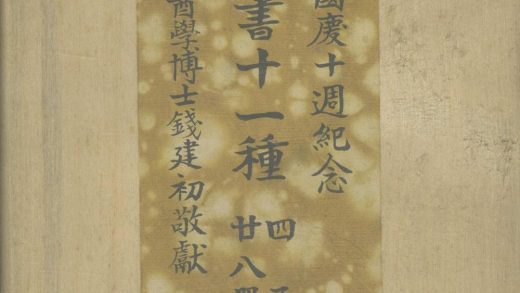 國慶十週紀念
書十一種
四
廿八
醫學博士錢建初敬獻